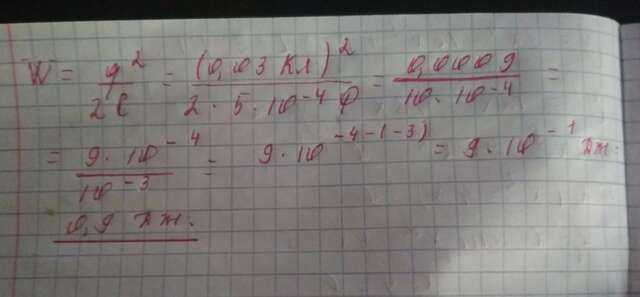 W = q²/2C = (0,03 Кл)²/2·5·10⁻⁴ Ф = 0,0009/10·10⁻⁴ =
= 9·10⁻⁴/10⁻³ = 9·10⁻⁴⁻⁽⁻³⁾ = 9·10⁻¹ Дж.
0,9 Дж.